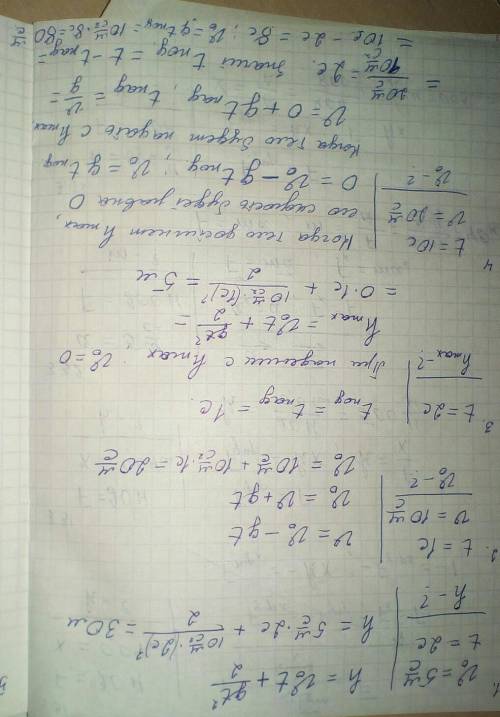 1.
v₀ = 5 м/с
t = 2c
h - ?
h = v₀t + gt²/2
h = 5 м/с · 2c + 10 м/с² · (2c)²/2 = 30 м
2.
t = 1c
v = 10 м/с
v₀ - ?
v = v₀ - gt
v₀ = v + gt
v₀ = 10 м/с + 10 м/с² · 1c = 20 м/с
3.
t = 2c
hmax - ?
tпод = tпад = 1c.
При падении с hmax v₀ = 0
hmax = v₀t + gt²/2 =
= 0 · 1c + 10 м/с² · (1c)²/2 = 5 м
4
t = 10c
v = 20 м/с
v₀ - ?
Когда тело достигнет hmax,
его скорость будет равна 0
0 = v₀ - gtпод ; v₀ = gtпод
Когда тело будет падать с hmax,
v = 0 + gtпад, tпад = v/g =
= 20 м/с / 10 м/с² = 2c. Значит tпод = t - tпад =
= 10c - 2c = 8c ; v₀ = gtпод = 10 м/с² · 8c = 80 м/с